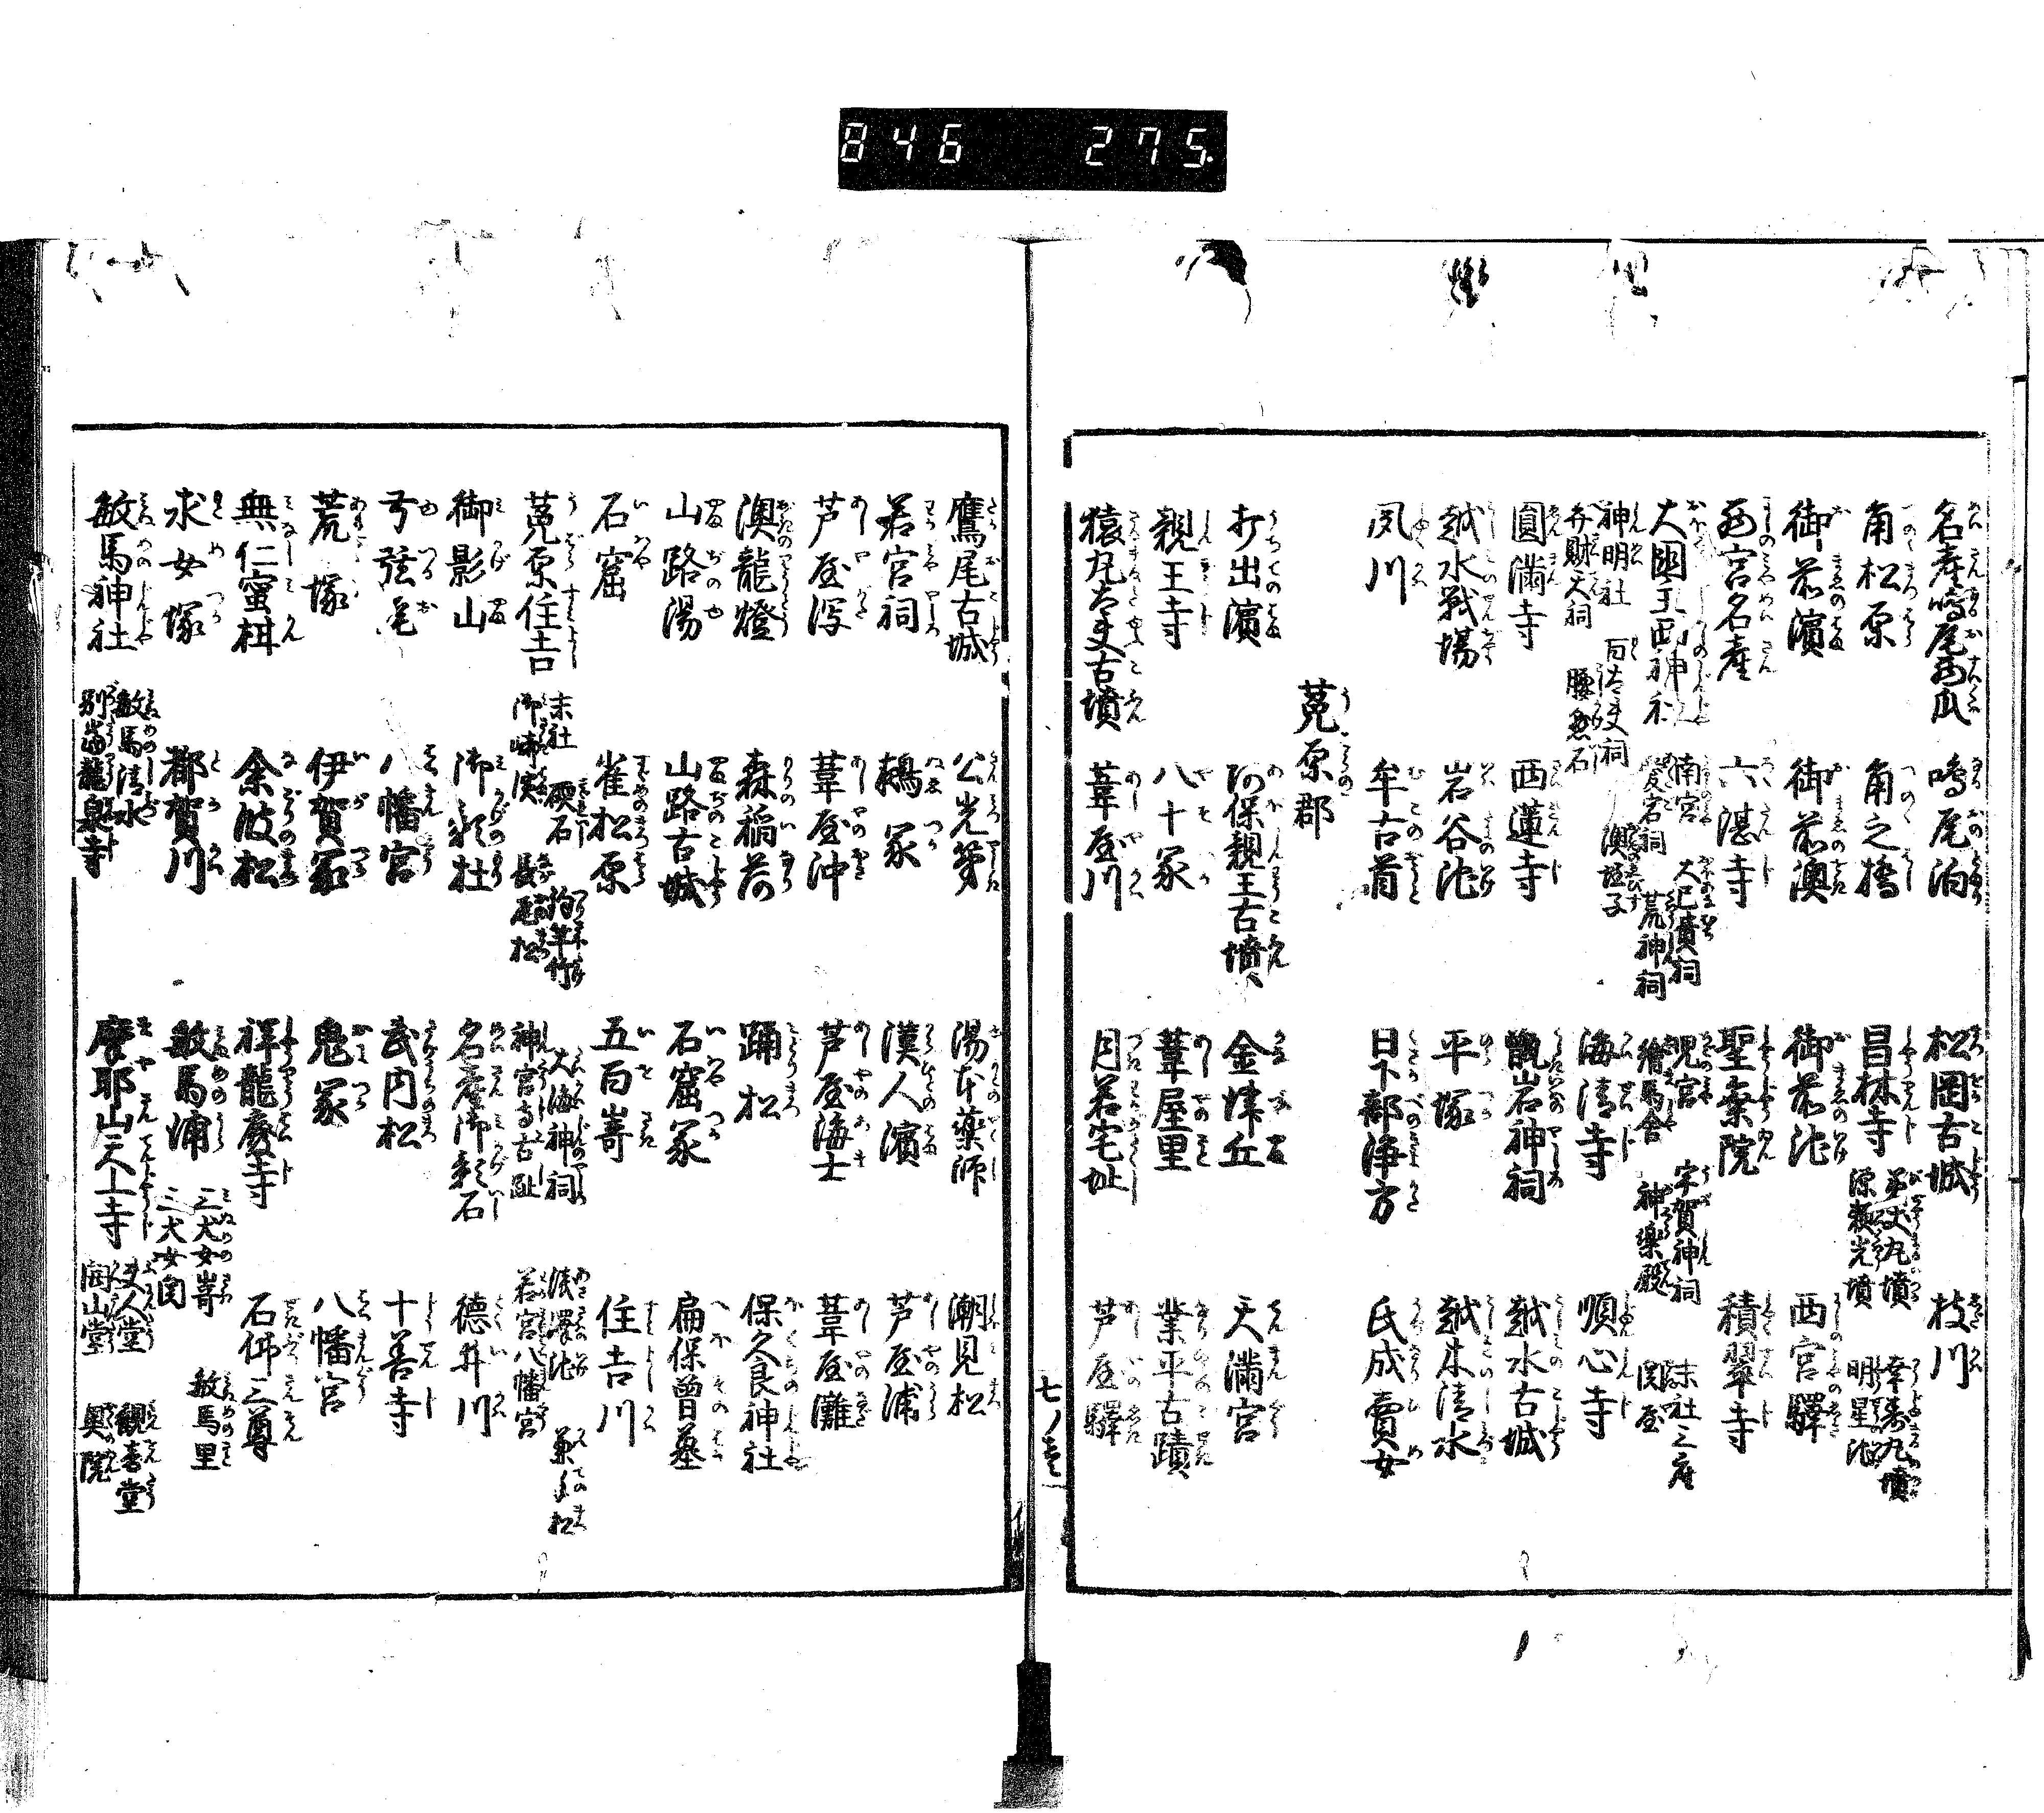 846 275
名産鳴尾西瓜 鳴尾泊 松岡古城 枝川
角松原 角之橋 昌林寺 美丈丸墳 源頼光墳 幸寿丸墳 明星池
御前濱 御前澳 御前池 西宮驛
西宮名産 六湛寺 聖衆院 積翠寺
大國主西神社 南宮 愛宕祠 大己貴祠 荒神祠 児宮 繪馬舎 宇賀神祠 神樂殿 末社三座 関屋
神明社 百太夫祠 澳夷子
弁財天祠 腰懸石 海清寺 順心寺
圓満寺 西蓮寺 甑岩神祠 越水古城
越水戦場 岩谷池 平塚 越水清水
夙川 牟古首 日下部浄方 氏成賣女
菟原郡
打出濱 阿保親王古墳 金津丘 天満宮
親王寺 八十塚 葦屋里 業平古蹟
猿丸太夫古墳 葦屋川 月若宅址 芦屋驛
七ノ壱
鷹尾古城 公光第 湯本薬師 潮見松
若宮祠 鵺塚 漢人濱 芦屋浦
芦屋潟 葦屋沖 芦屋海士 葦屋灘
澳龍燈 森稲荷 踊松 保久良神社
山路湯 山路古城 石窟塚 扁保曽墓
石窟 雀松原 五百嵜 住吉川
菟原住吉 末社 硯石 拘羊竹 大海神祠 浅澤池
御崎濱 長尾松 神宮寺古趾 若宮八幡宮
御影山 御影杜 名産御影石 徳井川
弓弦羽 八幡宮 武内松 十善寺
荒塚 伊賀塚 鬼塚 八幡宮
無仁蜜柑 余波松 祥龍廃寺 石佛三尊
求女塚 都賀川 敏馬浦 三犬女嵜 三犬女関 敏馬里
敏馬神社 敏馬清水 別當龍泉寺 摩耶山天上寺 丈人堂 開山堂 観音堂 奥院